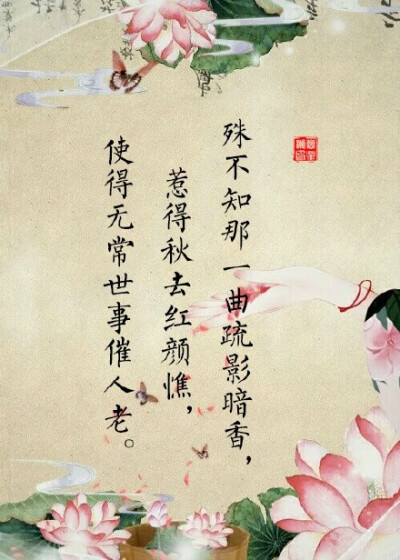 殊不知那一曲疏影暗香，
惹得秋去红颜憔，
使得无常世事催人老。